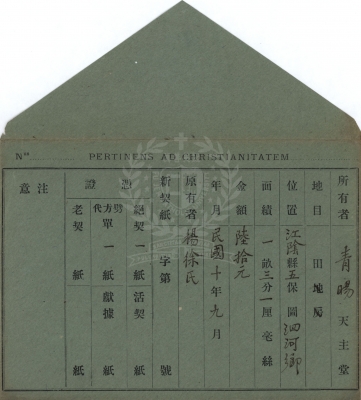 Nᵒˢ PERTINENS AD CHRISTIANITATEM
所有者 青暘 天主堂
地目 田地房
位置 江陰縣五保 圖 泗河鄉
面績 一畝三分一厘毫絲
金額 陸拾元
年月 民國十年九月
原有者 楊徐氏
新契紙 字第 號
憑證 絕契一紙 活契 紙
代方單 一紙 獻據 紙
老契 紙
注意